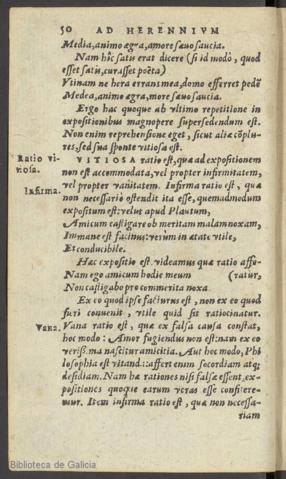 50 AD HERENNIVM
Media, animo ægra, amore sæuo saucia.
Nam hîc satis erat dicere (si id modò, quod
esset satis, curasset poëta)
Vtinam ne hera errans mea, domo efferret pedē
Medea, animo ægra, more sæuo saucia.
Ergo hac quoque ab vltimo repetitione in
expositionibus magnopere supersedendum est.
Non enim reprehensione eget, sicut aliæ cōplu-
res, sed sua sponte vitiosa est.
Ratio vi-
tiosa.
VITIOSA ratio est, quæ ad expositionem
non est accommodata, vel propter infirmitatem,
vel propter vanitatem. Infirma ratio est, quæ
Infirma.
non necessariò ostendit ita esse, quemadmodum
expositum est: velut apud Plautum,
Amicum castigare ob meritam malam noxam,
Immane est facinus: verùm in ætate vtile,
Et conducibile.
Hæc expositio est. videamus quæ ratio affe-
Nam ego amicum hodie meum (ratur,
Non castigabo pro commerita noxa.
Ex eo quod ipse facturus est, non ex eo quod
fieri conuenit, vtile quid sit ratiocinatur.
Vana.
Vana ratio est, quæ ex falsa causa constat,
hoc modo: Amor fugiendus non est: nam ex eo
veriss. ma nascitur amicitia. Aut hoc modo, Phi
losophia est vitanda: affert enim socordiam atq;
desidiam. Nam hæ rationes nisi falsæ essent, ex-
positiones quoque earum veras esse confitere-
mur. Item infirma ratio est, quæ non necessa-
riam
Biblioteca de Galicia